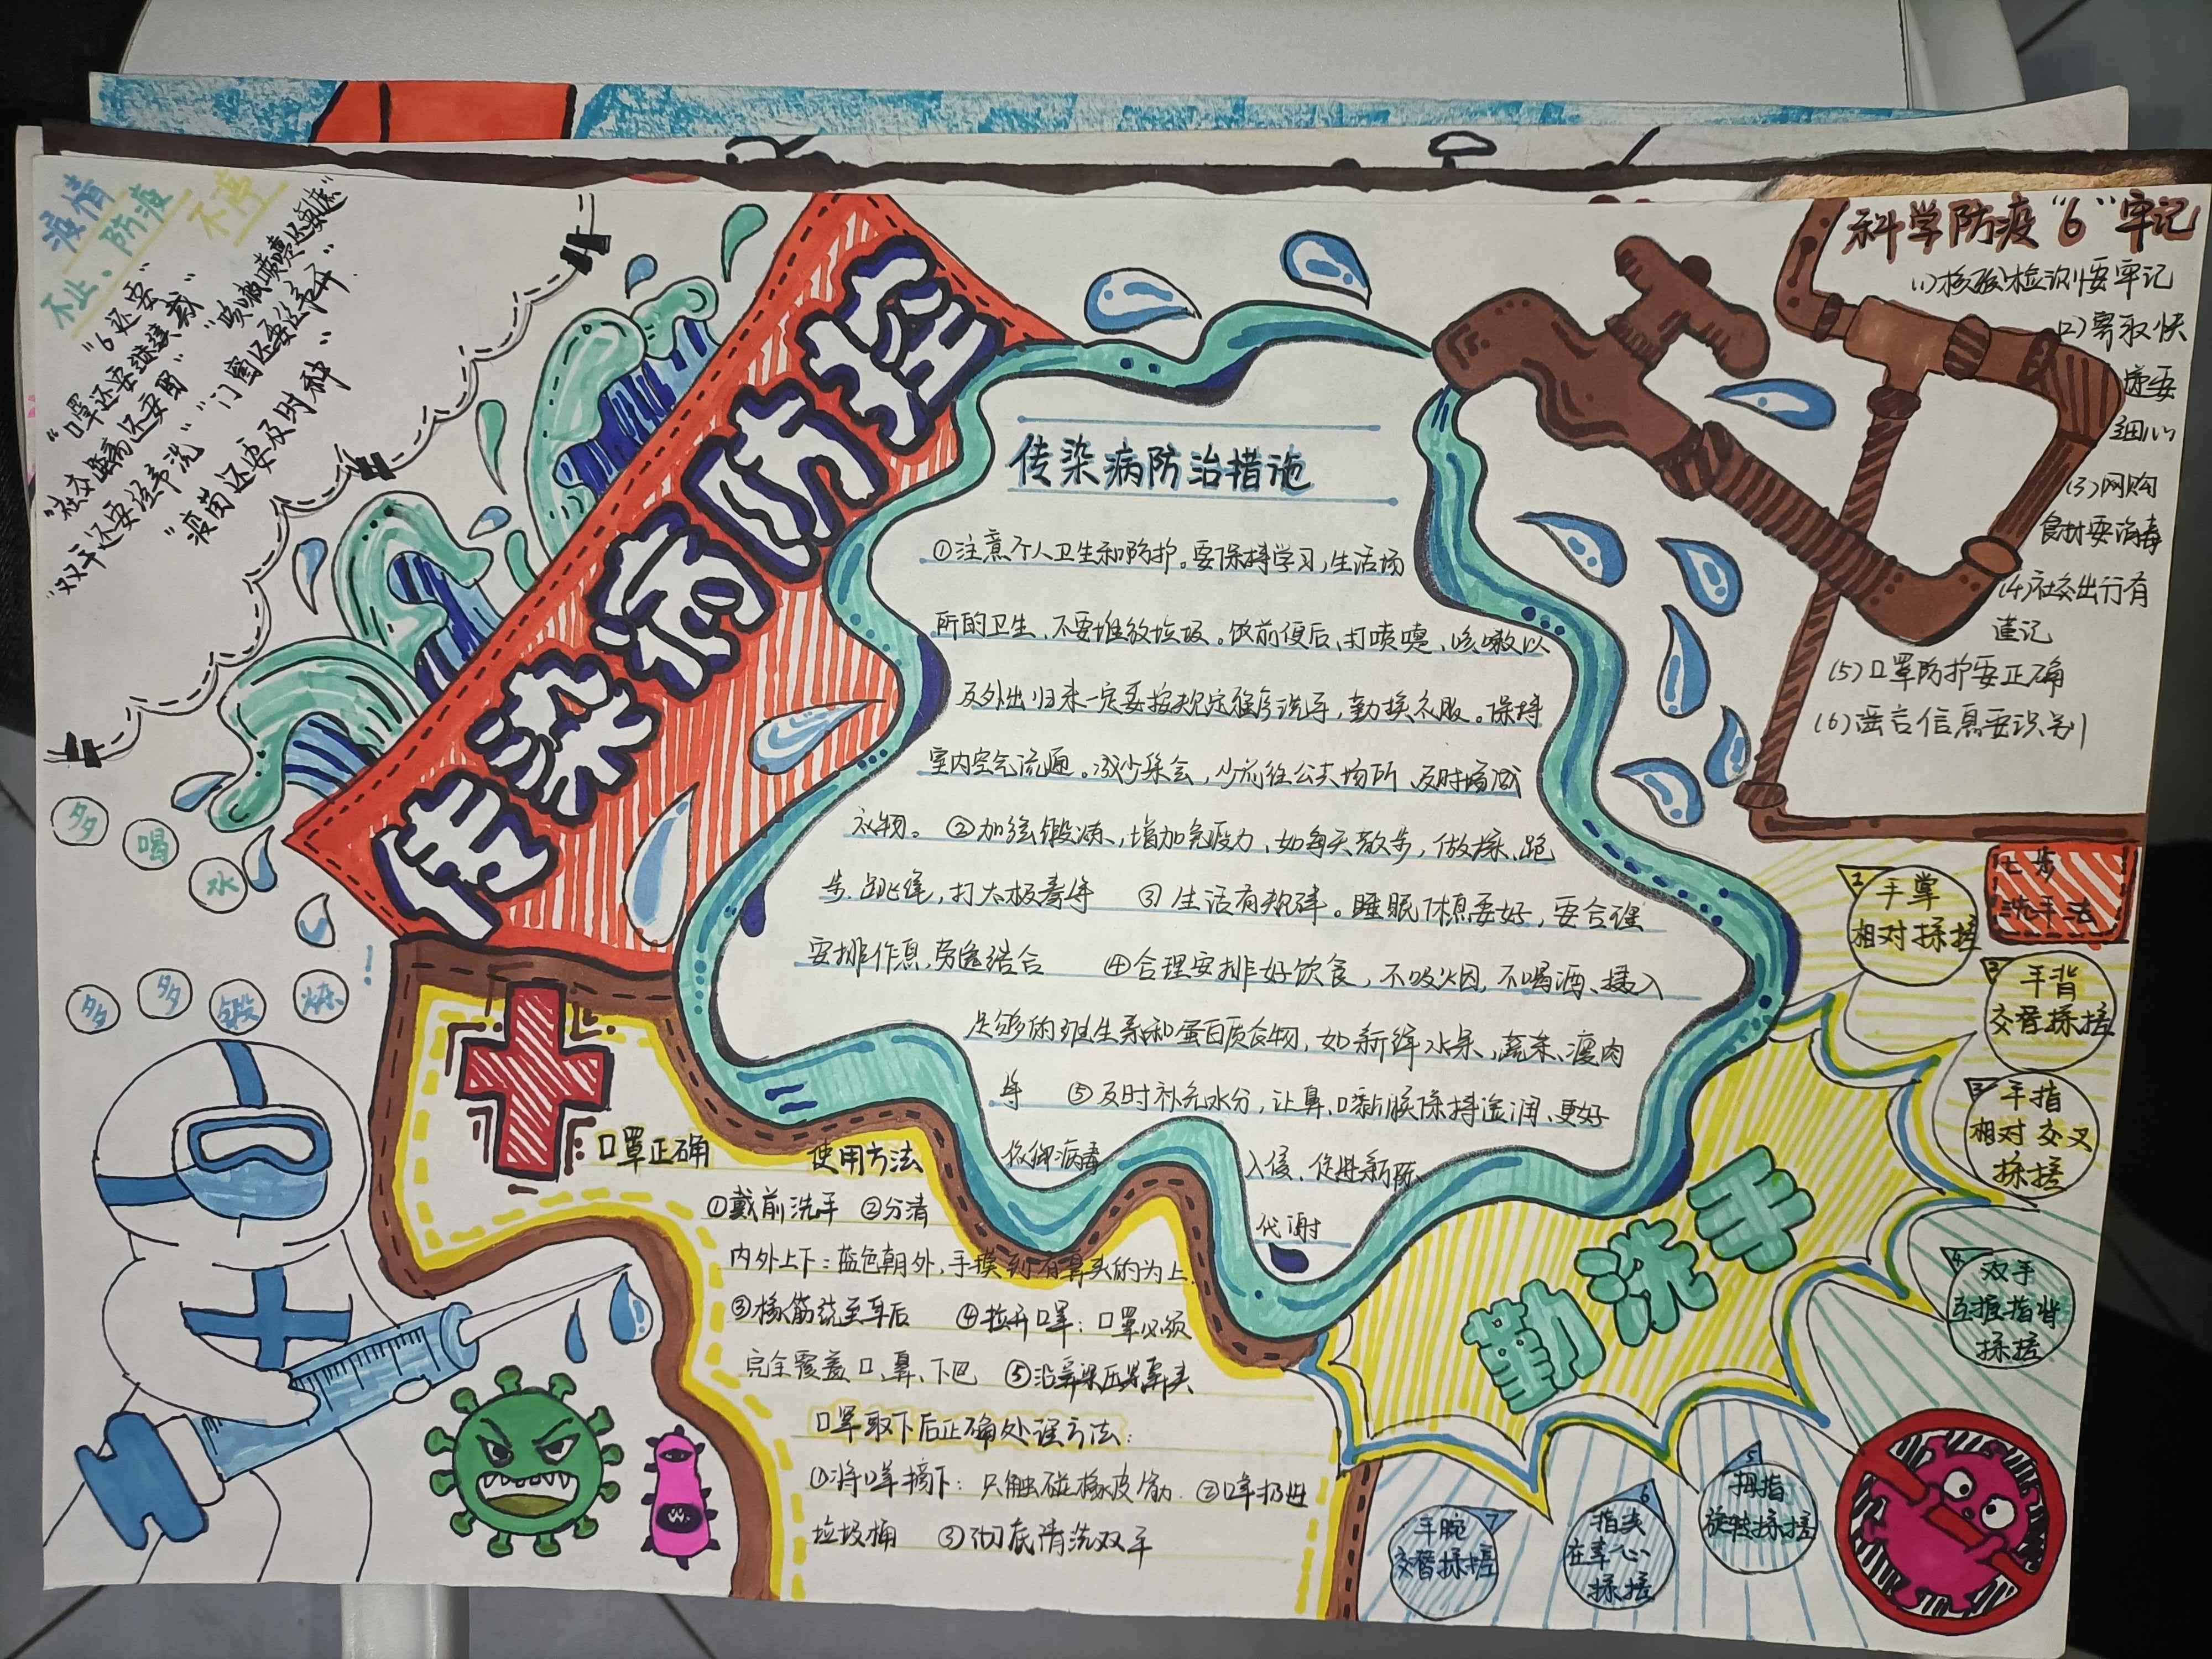 疫情
不止、防疫
不停
"6还要"
"口罩还要继续戴"
"社交距离还要留"
"咳嗽喷嚏还要遮"
"双手还要经常洗"
"门窗还要经常开"
"疫苗还要及时种"
多
喝
水
多
多
锻
炼
!
传染病防控
传染病防治措施
①注意个人卫生和防护。要保持学习,生活场
所的卫生、不要堆放垃圾。饭前便后、打喷嚏、咳嗽以
及外出归来一定要按规定程序洗手,勤换衣服。保持
室内空气流通。减少集会,少前往公共场所 及时增减
衣物。 ②加强锻炼,增加免疫力、如每天散步,做操、跑
步、跳绳,打太极拳等 ③生活有规律。睡眠休息要好,要合理
安排作息,劳逸结合 ④合理安排好饮食,不吸烟,不喝酒、摄入
足够的维生素和蛋白质食物,如新鲜水果,蔬菜、瘦肉
等 ⑤及时补充水分,让鼻、口黏膜保持湿润、更好
抵御病毒 入侵、促进新陈
代谢
科学防疫"6"牢记
(1)核酸检测要牢记
(2)寄取快
递要
细心
(3)网购
食材要消毒
(4)社交出行有
谨记
(5)口罩防护要正确
(6)谣言信息要识别
口罩正确 使用方法
①戴前洗手 ②分清
内外上下:蓝色朝外,手摸到有鼻夹的为上.
③橡筋绕至耳后 ④拉开口罩:口罩必须
完全覆盖口、鼻、下巴 ⑤沿鼻梁压紧鼻夹
口罩取下后正确处理方法:
①将口罩摘下:只触碰橡皮筋 ②口罩扔进
垃圾桶 ③彻底清洗双手
勤洗手
七步
洗手法
手掌
相对揉搓
手背
交替揉搓
3
手指
相对交叉
揉搓
4
双手
互握指背
揉搓
5
拇指
旋转揉搓
6
指尖
在掌心
揉搓
7
手腕
交替揉搓